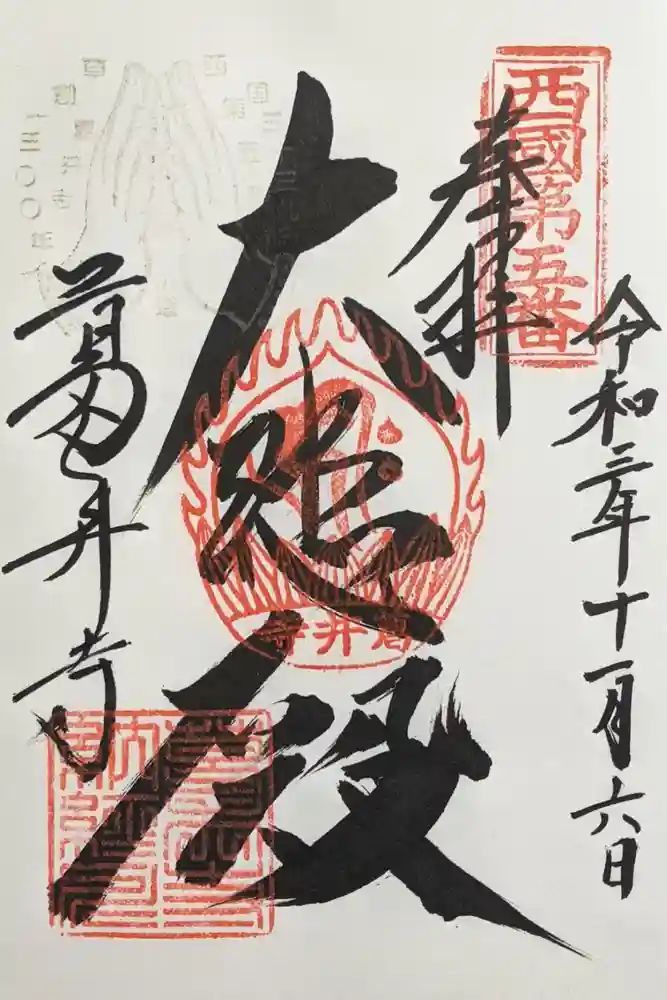 令和三年十一月六日
西國第五番
奉拝
大悲殿
葛井寺
葛井寺